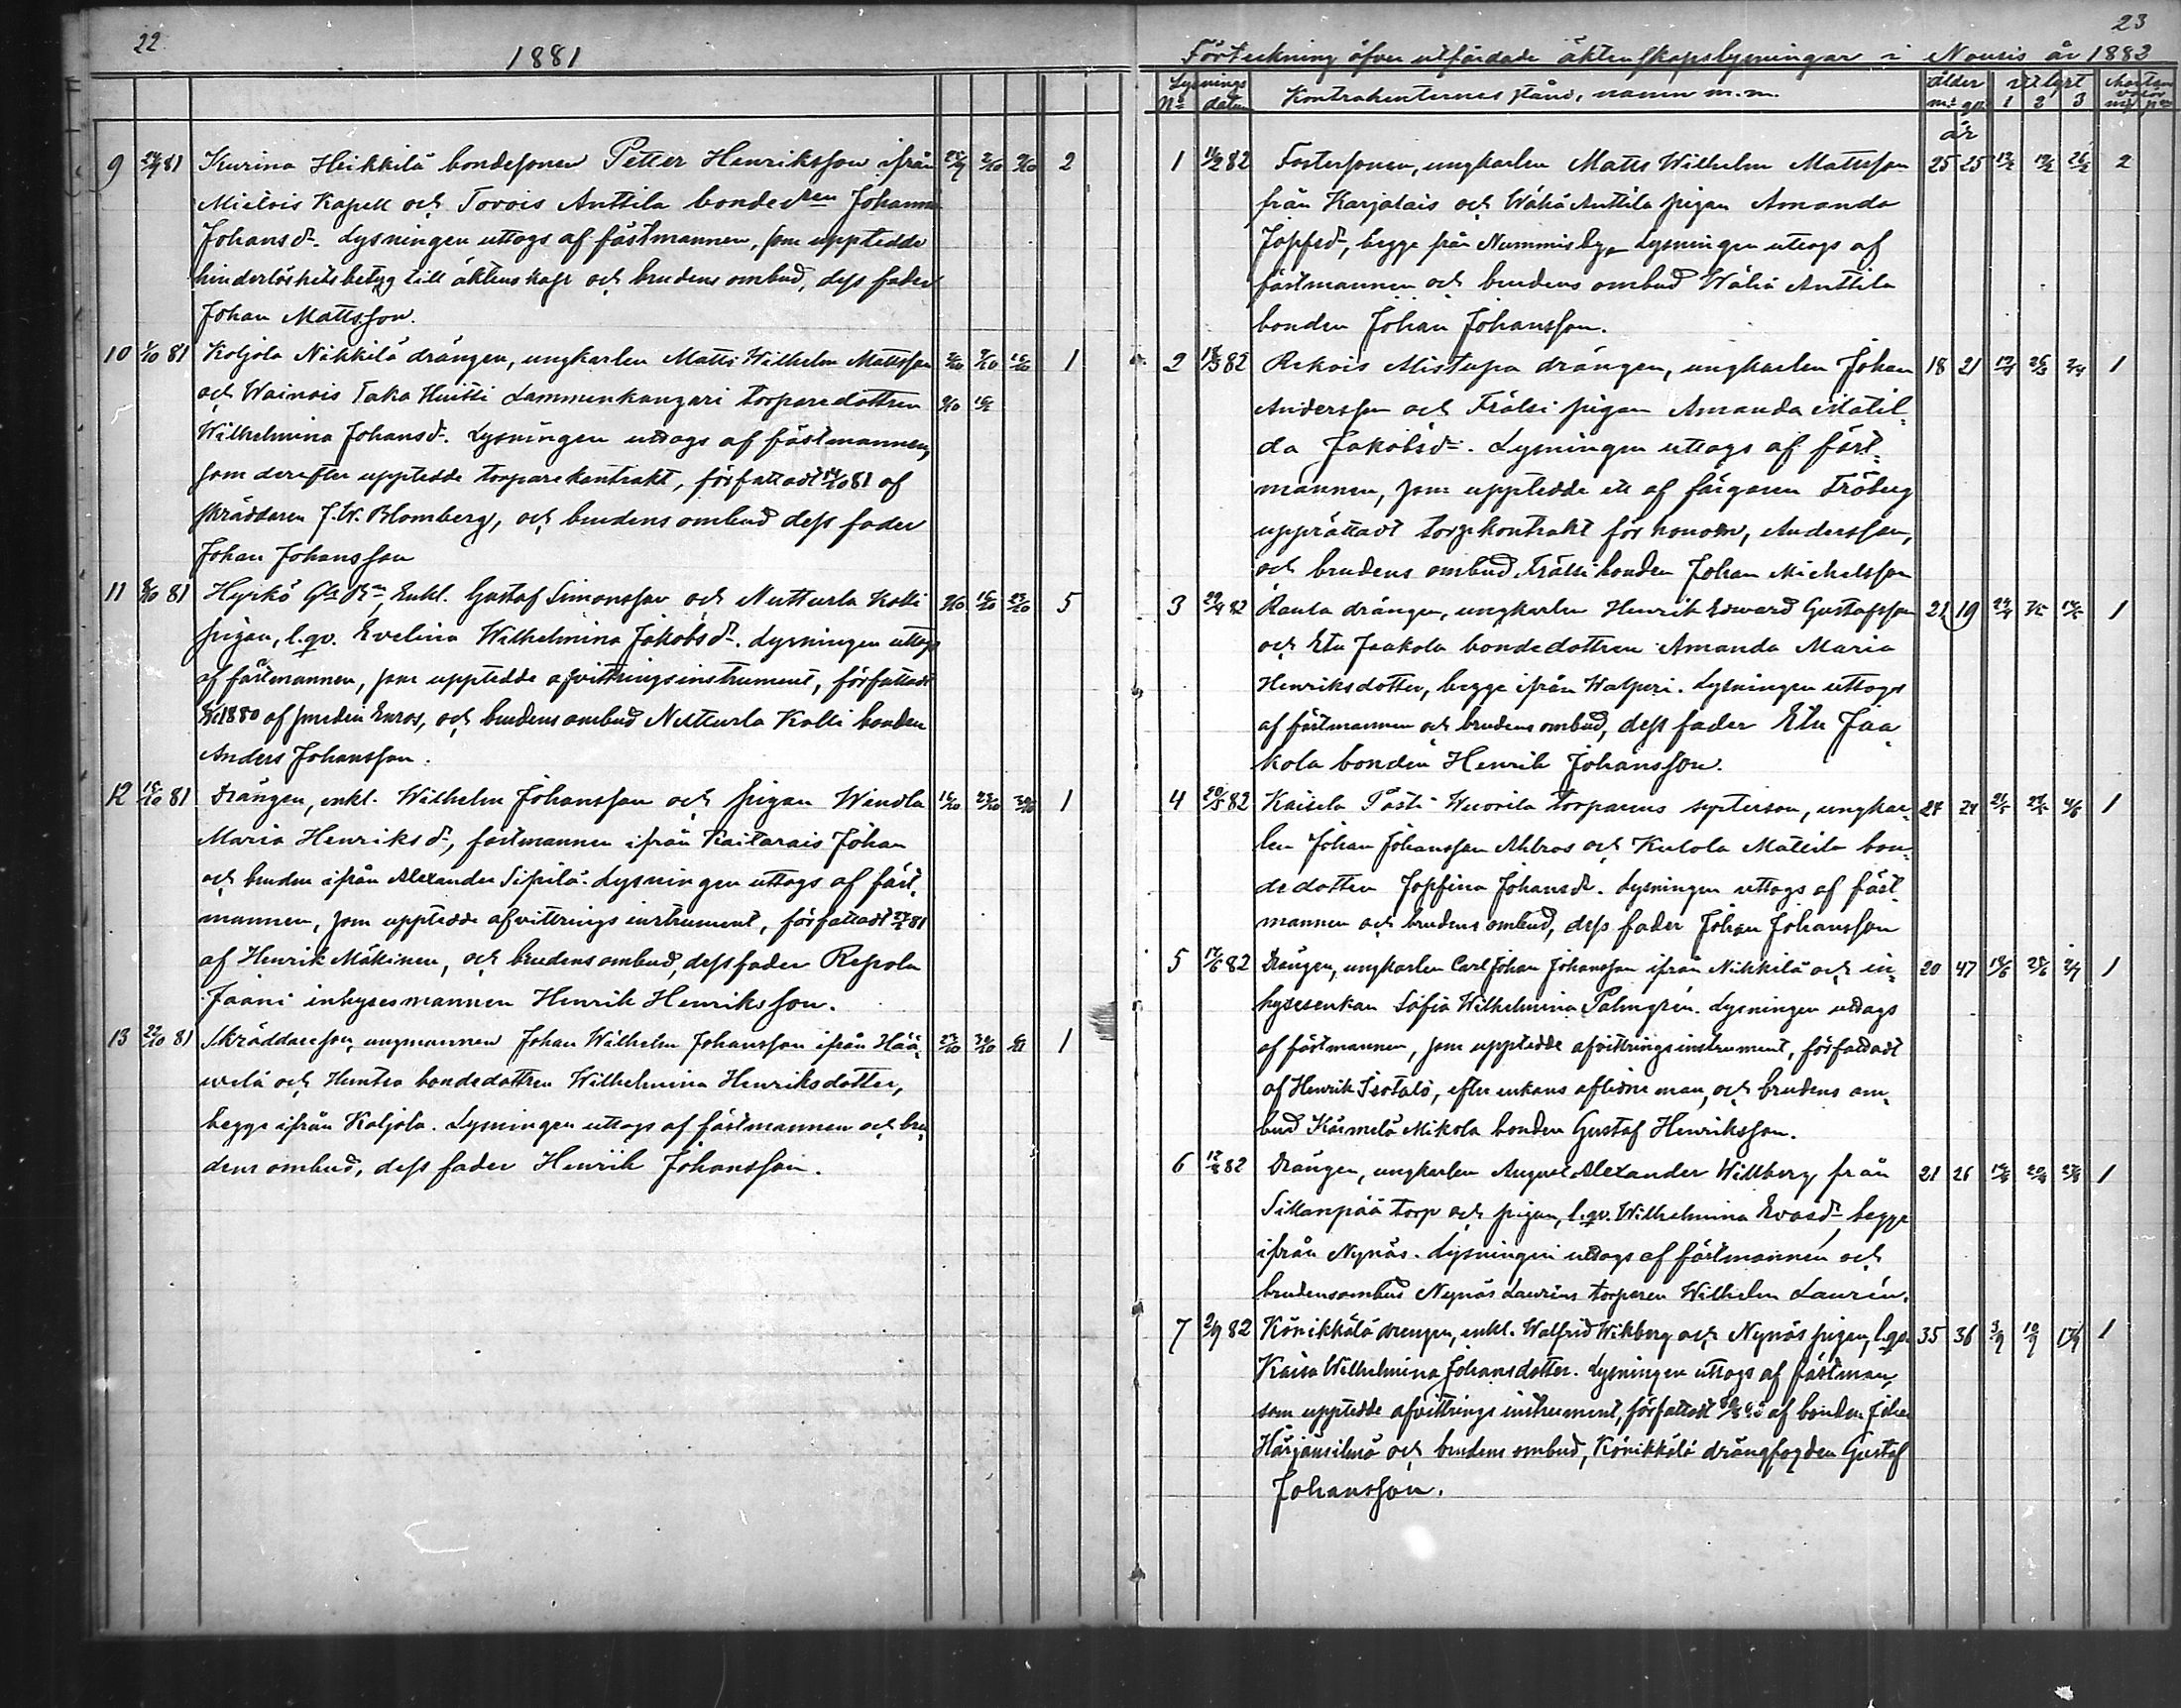 22
1881
9 24/9 81 Kurina Heikkilä bondesonen Petter Henriksson ifrån 25/9 2/10 9/10 2
Mietois Kapell och Torois Anttila bonded:ren Johanna
Johansdr. Lysningen uttogs af fästmannen, som upptedde
hinderlöshetsbetyg till äktenskap och brudens ombud, dess fader
Johan Mattsson.
10 1/10 81 Koljola Nikkilä drängen, ungkarlen Matts Wilhelm Mattsson 2/10 9/10 16/10 1
och Wainois Taka Huitti Lammenkangari torparedottren
Wilhelmina Johansdr. Lysningen uttogs af fästmannen,
som derefter upptedde torparekontrakt, författadt 81 af
skräddaren J. W. Blomberg, och brudens ombud dess fader
Johan Johansson
11 8/10 81 Hyrkö Enkl. Gustaf Simonsson och Nutturla Kolli 9/10 16/10 23/10 5
pigan, l. qv. Evelina Wilhelmina Jakobsdr. Lysningen uttogs
af fästmannen, som upptedde afvittringsinstrument, författadt
1880 af smeden Enros, och brudens ombud Nutturla Kolli bonden
Anders Johansson.
12 15/10 81 Drängen, enkl. Wilhelm Johansson och pigan Wendla 16/10 23/10 30/10 1
Maria Henriksdr, fästmannen ifrån Kaitarais Johan
och bruden ifrån Alexander Sipilä. Lysningen uttogs af fäst-
mannen, som upptedde afvittringsinstrument, författadt 81
af Henrik Mäkinen, och brudens ombud, dess fader Repola
Jaani inhysesmannen Henrik Henriksson.
13 22/10 81 Skräddareson, ungmannen Johan Wilhelm Johansson ifrån Hää- 23/10 30/10 6/11 1
welä och Huntea bondedottren Wilhelmina Henriksdotter,
begge ifrån Koljola. Lysningen uttogs af fästmannen och bru-
dens ombud, dess fader Henrik Johansson.
23
Förteckning öfver utfärdade äktenskapslysningar i Nousis år 1882
Lysnings ålder utlyst
No datum Kontrahenternes stånd, namn m. m. m. qv. 1 2 3
år
1 11/2 82 Fostersonen, ungkarlen Matts Wilhelm Mattsson 25 25 12/2 19/2 26/2 2
från Karjalais och Wähä Anttila pigan Amanda
Josefsdr, begge från Nummis by. Lysningen uttogs af
fästmannen och brudens ombud Wähä Anttila
bonden Johan Johansson.
2 18/3 82 Rekois Mistupa drängen, ungkarlen Johan 18 21 19/3 26/3 2/4 1
Andersson och Frälsi pigan Amanda Matil-
da Jakobsdr. Lysningen uttogs af fäst-
mannen, som upptedde ett af färgaren Fröberg
upprättadt torpkontrakt för honom, Andersson,
och brudens ombud, Frälsi bonden Johan Michelsson
3 29/4 82 Raula drängen, ungkarlen Henrik Edward Gustafsson 21 19 1
och Etu Jaakola bondedottren Amanda Maria
Henriksdotter, begge ifrån Walperi. Lysningen uttogs
af fästmannen och brudens ombud, dess fader Etu Jaa-
kola bonden Henrik Johansson.
4 20/5 82 Kaisela Pästi Wuorila torparens systerson, ungkar- 24 24 21/5 28/5 4/6 1
len Johan Johansson Ahlroos och Kulola Mattila bon-
dedotten Josefina Johansdr. Lysningen uttogs af fäst-
mannen och brudens ombud, dess fader Johan Johansson
5 17/6 82 Drängen, ungkarlen Carl Johan Johansson ifrån Nikkilä och in- 20 47 18/6 25/6 2/7 1
hysesenkan Sofia Wilhelmina Palmgrén. Lysningen uttogs
af fästmannen, som upptedde afvittringsinstrument, författadt
af Henrik Isotalo, efter enkans aflidne man, och brudens om-
bud Kärmelä Mikola bonden Gustaf Henriksson.
6 12/8 82 Drängen, ungkarlen August Alexander Willberg från 21 26 20/8 1
Sillanpää torp och pigan, l. qv. Wilhelmina Evasdr begge
ifrån Nynäs. Lysningen uttogs af fästmannen och
brudensombud Nynäs Laurins torparen Wilhelm Laurén.
7 2/9 82 Könikkälä drengen, enkl. Walfrid Wikberg och Nynäs pigan, l. qv. 35 36 3/9 10/9 17/9 1
Kaisa Wilhelmina Johansdotter. Lysningen uttogs af fästman,
som upptedde afvittrings instrument, författadt af bonden Johan
Härjänsilmä och brudens ombud, Könikkälä drängfogden Gustaf
Johansson.